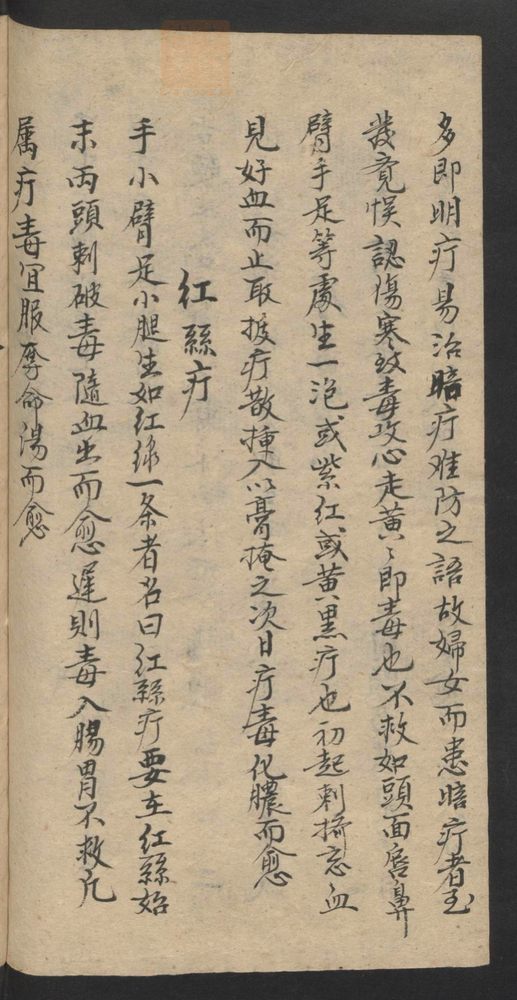 多即明疔易治暗疔难防之語故婦女而患暗疔者至
發竟悮認傷寒致毒攻心走黄〻即毒也不救如頭面唇鼻
臂手足等處生一泡或紫红或黄黒疔也初起刺擠恶血
見好血而止取拔疔散揷入以膏掩之次日疔毒化膿而愈
红絲疔
手小臂足小腿生如红线一条者名曰红絲疔要在红絲始
末両頭刺破毒隨血出而愈遲則毒入腸胃不救凢
属疔毒宜服奪命湯而愈